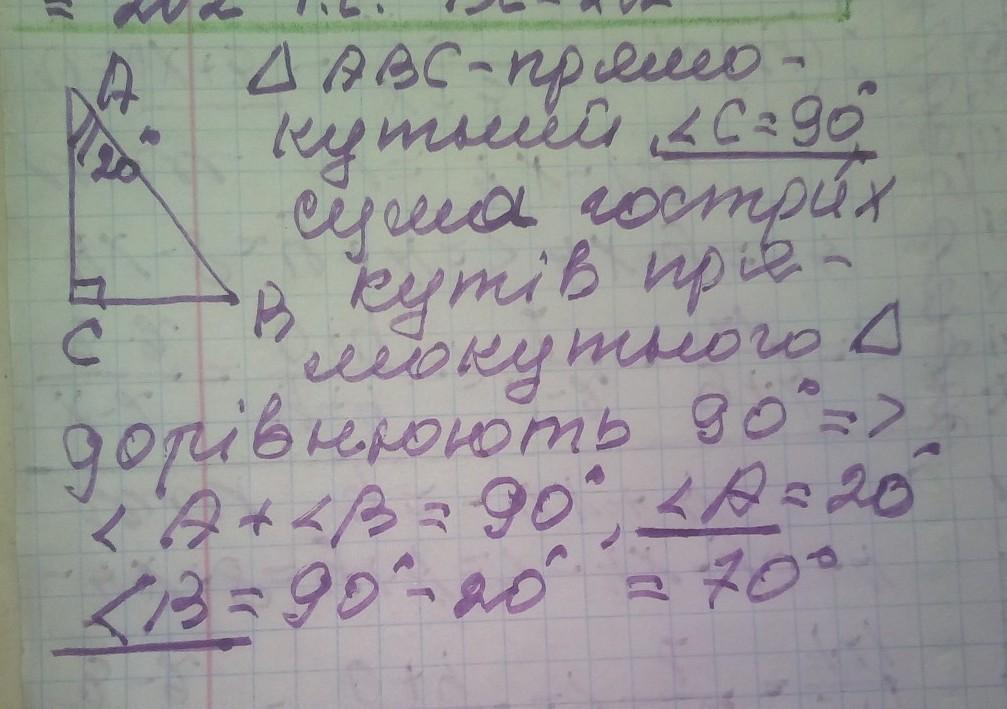 △ ABC - прямо -
кутний, ∠C = 90°,
сума гострих
кутів пря -
мокутного △
дорівнюють 90° =>
∠A + ∠B = 90°, ∠A = 20°
∠B = 90° - 20° = 70°
A
20°
C
B